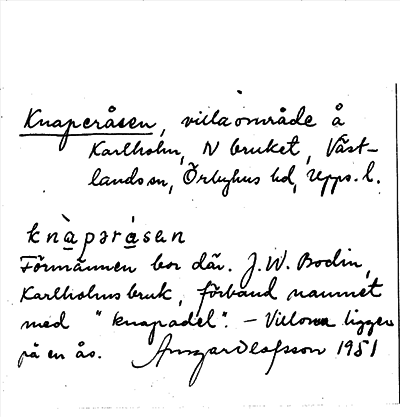 Knaperåsen, villaområde å
Karlholm, N bruket, Väst-
lands sn, Örbyhus hd, Upps. l.
knàpəråsən
Förmännen bor där. J.W. Bodin,
Karlholms bruk, förband namnet
med "knapadel". - Villorna ligger
på en ås. Ansgar Olofsson 1951